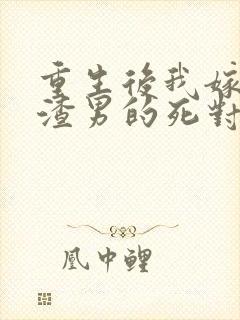 重生後我嫁
渣男的死對
凰中鯉